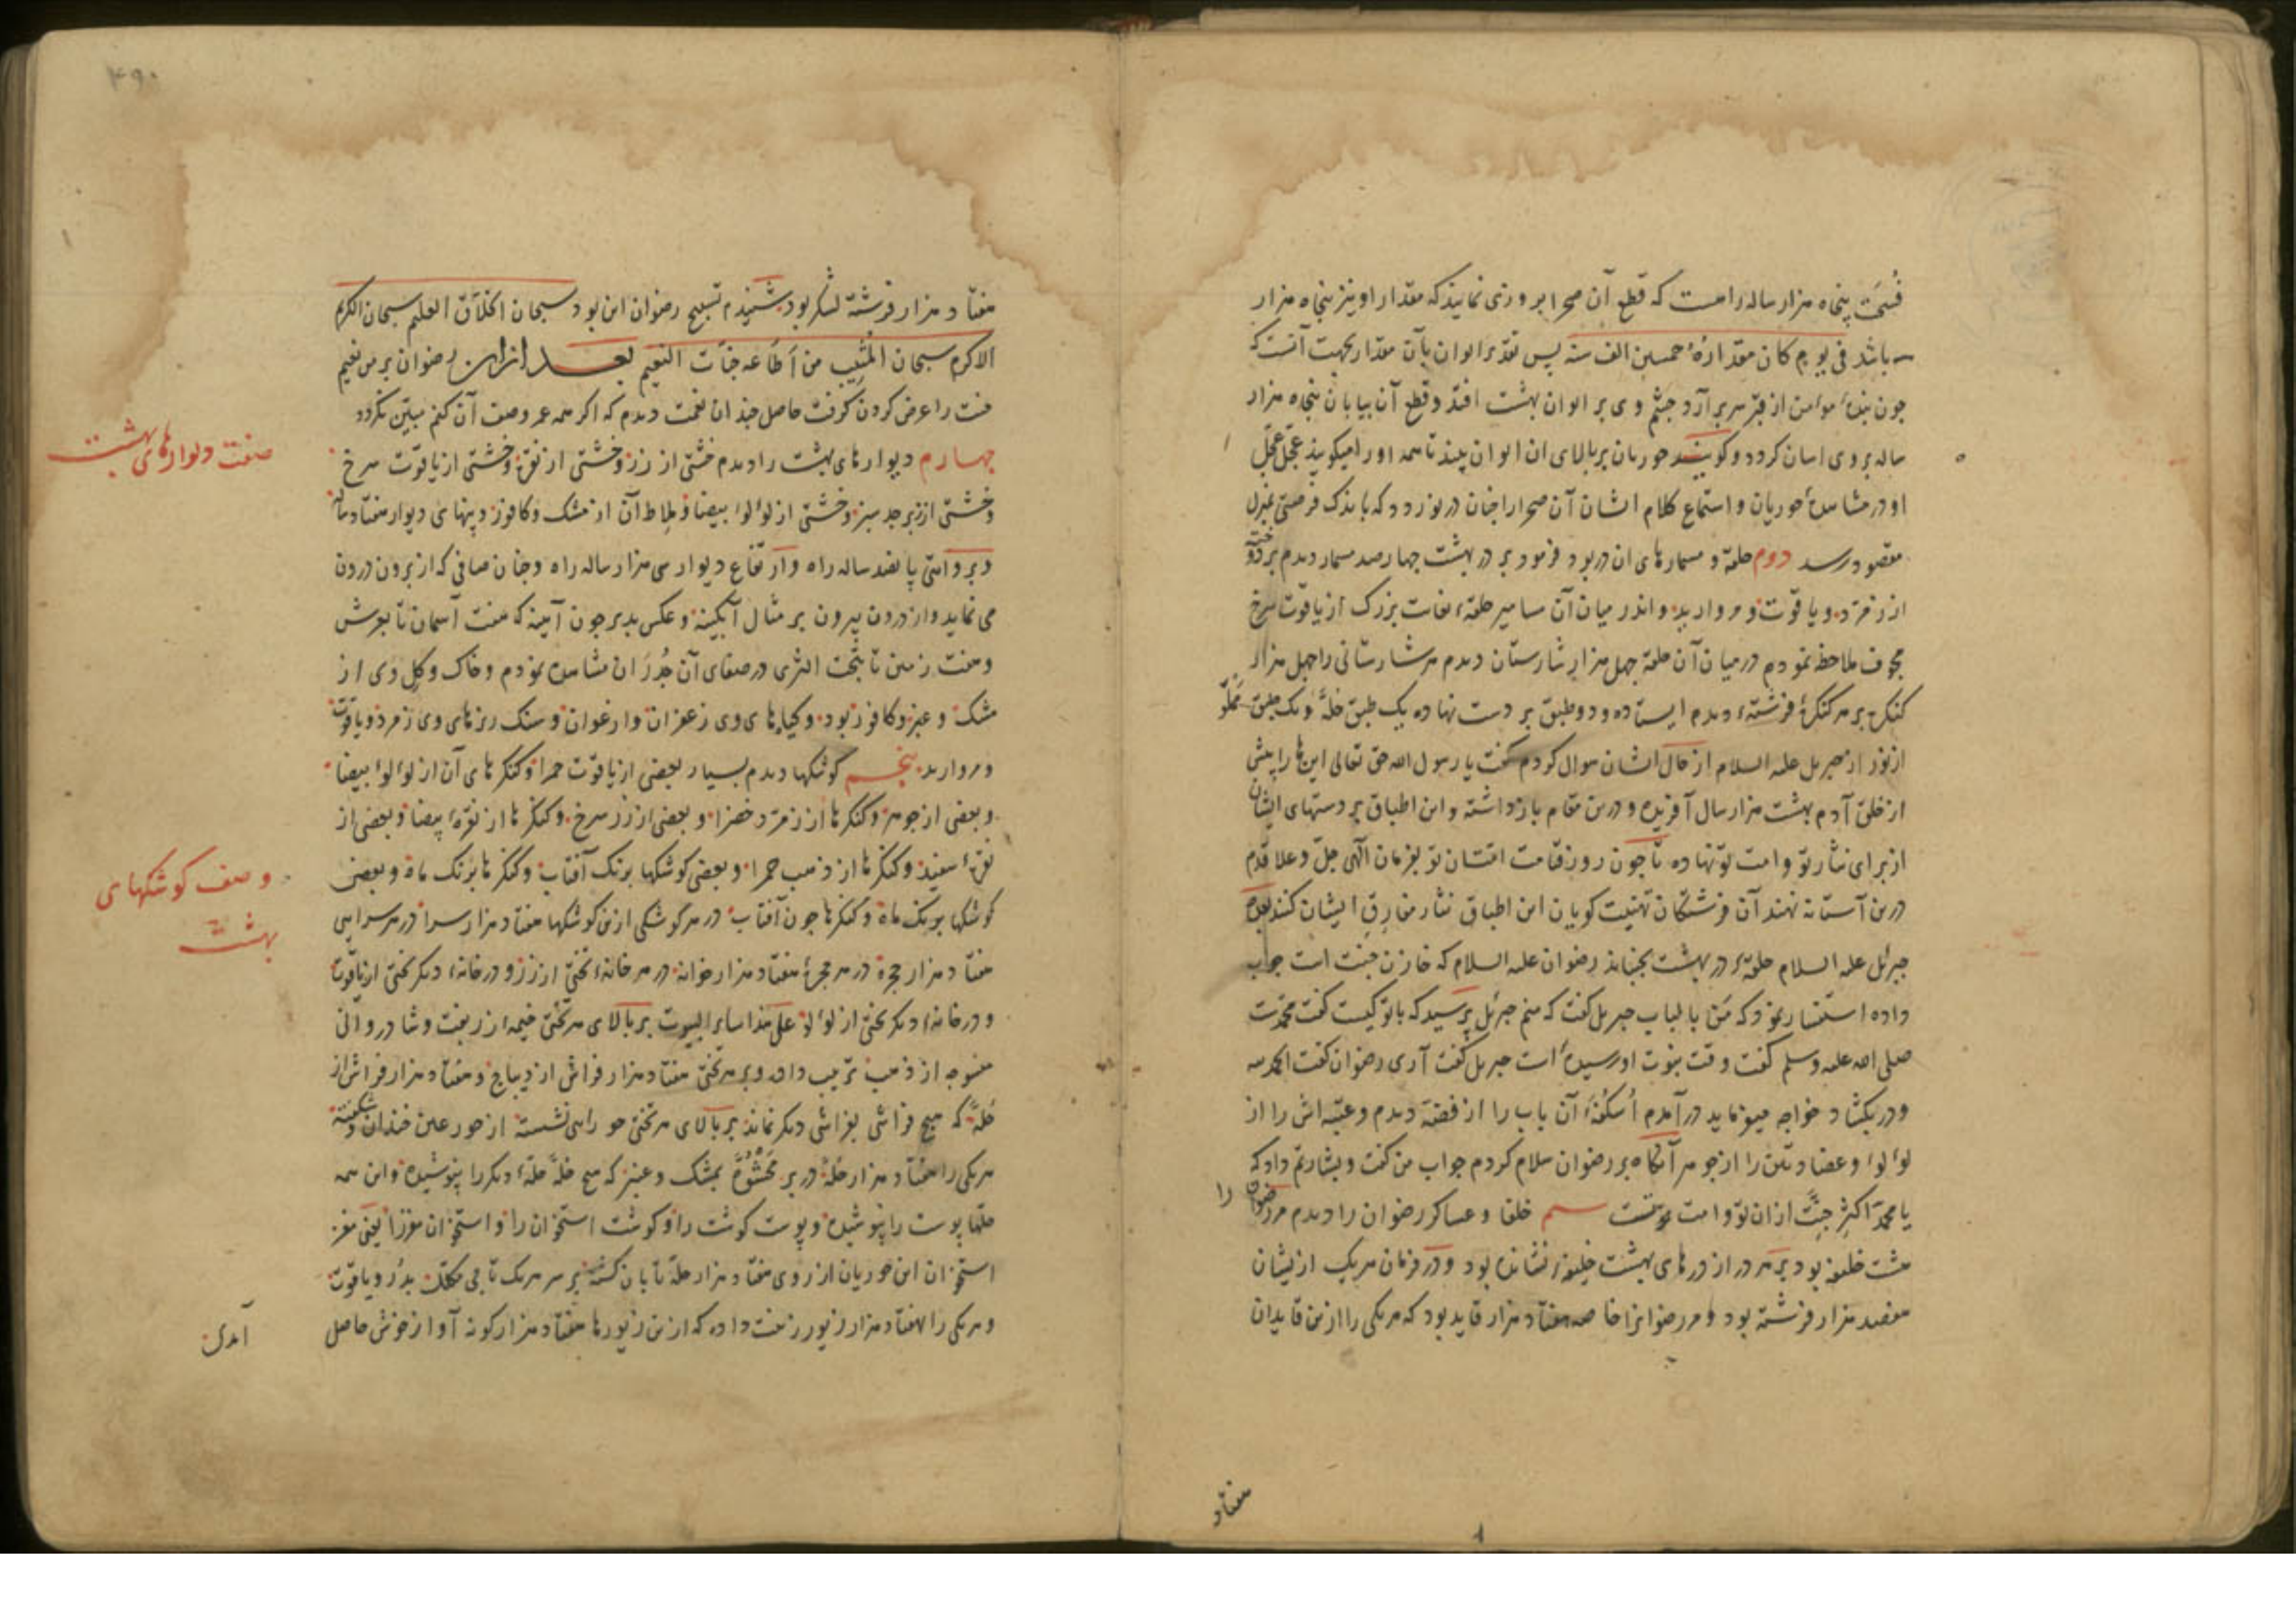 فسحت پنجاه هزار ساله راهست که قطع آن صحرا بروزی نمایند که مقدار او نیز پنجاه هزار
باشد فی یوم کان مقداره خمسین الف سنه پس تقدیر الوان بآن مقدار بجهت آنست که
چون بنده مؤمن از قبر سر برآرد چشم وی بر الوان بهشت افتد و قطع آن بیابان پنجاه هزار
ساله بر وی اسان کردد و کویند حوریان بر بالای ان ایوان بیند تا همه او را میکویند عجّل عجّل
او در مشاهده حوریان و استماع کلام ایشان آن صحرا را چنان در نوردد که باندک فرصتی بمنزل
مقصود رسد دوم حلقه و مسمارهای ان در بود فرمود بر در بهشت چهارصد مسمار دیدم بر دوخته
از زمرد و یاقوت و مروارید و اندر میان آن مسامیر حلقه بغایت بزرک از یاقوت سرخ
مجوف ملاحظه نمودم در میان آن حلقه چهل هزار شارستان دیدم هر شارستانی را چهل هزار
کنکره بر هر کنکره فرشته دیدم ایستاده و دو طبق بر دست نهاده یک طبق حله و یک طبق مملو
از نور از جبریل علیه السلام از حال ایشان سوال کردم کفت یا رسول الله حق تعالی این‌ها را پیش
از خلق آدم بهشت هزار سال آفریده و درین مقام بازداشته و این اطباق بر دستهای ایشان
از برای نثار تو و امت تو نهاده تا چون روز قیامت امتان تو بفرمان الهی جل و علا قدم
درین آستانه نهند آن فرشتکان تهنیت کویان این اطباق نثار مفارق ایشان کنند بعده
جبرئیل علیه السلام حلقه در بهشت بجنباند رضوان علیه السلام که خازن جنت است جواب
داده استفسار نمود که من بالباب جبریل کفت که منم جبرئیل پرسید که با تو کیست کفت محمدست
صلی الله علیه وسلم کفت وقت نبوت او رسیده است جبریل کفت آری رضوان کفت الحمد لله
و در بکشاد خواجه میفرماید در آمدم اسکفه آن باب را از فضه دیدم و عتبه اش را از
لؤلؤ و عضادتین را از جوهر آنکاه بر رضوان سلام کردم جواب من کفت و بشارتم داد که
یا محمد اکثر جنت از ان تو و امت تست سیم خلفا و عساکر رضوان را دیدم مر رضوان را
هشت خلیفه بود بر هر در از درهای بهشت خلیفه نشانده بود و در فرمان هر یک ازیشان
هفصد هزار فرشته بود و مر رضوانرا خاصه هفتاد هزار قاید بود که هر یکی را ازین قایدان
هفتاد
هفتاد هزار فرشته لشکر بود شنیدم تسبیح رضوان این بود سبحان الخلاق العلیم سبحان الکریم
الاکرم سبحان المثیب من اطاعه جنات النعیم بعد ازان رضوان بر من نعیم
جنت را عرض کردن کرفت حاصل چندان نعمت دیدم که اکر همه عمر وصف آن کنم مبین نکردد
چهارم دیوارهای بهشت را دیدم خشتی از زر و خشتی از نقره و خشتی از یاقوت سرخ
صفت دیوارهای بهشت
و خشتی از زبرجد سبز و خشتی از لؤلؤ بیضا و ملاط آن از مشک و کافور و پهنای دیوار هفتاد ساله
و بروایتی پانصد ساله راه و ارتفاع دیوار سی هزار ساله راه و چنان صافی که از برون درون
می نماید و از درون بیرون بر مثال آبکینه و عکس پذیر چون آیینه که هفت آسمان تا بعرش
و هفت زمین تا بتحت الثری در صفای آن جدران مشاهده نمودم و خاک و کل وی از
مشک و عنبر و کافور بود و کیاه‌های وی زعفران و ارغوان و سنک ریزهای وی زمرد و یاقوت
و مروارید پنجم کوشکها دیدم بسیار بعضی از یاقوت حمرا و کنکرهای آن از لؤلؤ بیضا
و بعضی از جوهر و کنکرها از زمرد خضرا و بعضی از زر سرخ و کنکرها از نقره بیضا و بعضی از
نقره سفید و کنکرها از ذهب حمرا و بعضی کوشکها برنک آفتاب و کنکرها برنک ماه و بعضی
وصف کوشکهای
بهشت
کوشکها برنک ماه و کنکرها چون آفتاب در هر کوشکی ازین کوشکها هفتاد هزار سرا در هر سرایی
هفتاد هزار حجره در هر حجره هفتاد هزار خانه در هر خانه تختی از زر و در خانه دیکر تختی از یاقوت
و در خانه دیکر تختی از لؤلؤ علی هذا سایر البیوت بر بالای هر تختی خیمه از زربفت و شادروانی
منسوجه از ذهب ترتیب داده و بر هر تختی هفتاد هزار فراش از دیباج و هفتاد هزار فراش از
حله که هیچ فراشی بفراشی دیکر نماند بر بالای هر تختی حورایی نشسته از حور عین خندان و شکفته
هر یکی را هفتاد هزار حله در بر محشوه بمشک و عنبر که هیچ حله حله دیکر را نپوشیده و این همه
حلها پوست را نپوشیده و پوست کوشت را و کوشت استخوان را و استخوان مغز را یعنی مغز
استخوان این حوریان از روی هفتاد هزار حله تابان کشته بر سر هر یک تاجی مکلل بدر و یاقوت
و هر یکی را هفتاد هزار زیور زینت داده که ازین زیورها هفتاد هزار کونه آواز خوش حاصل